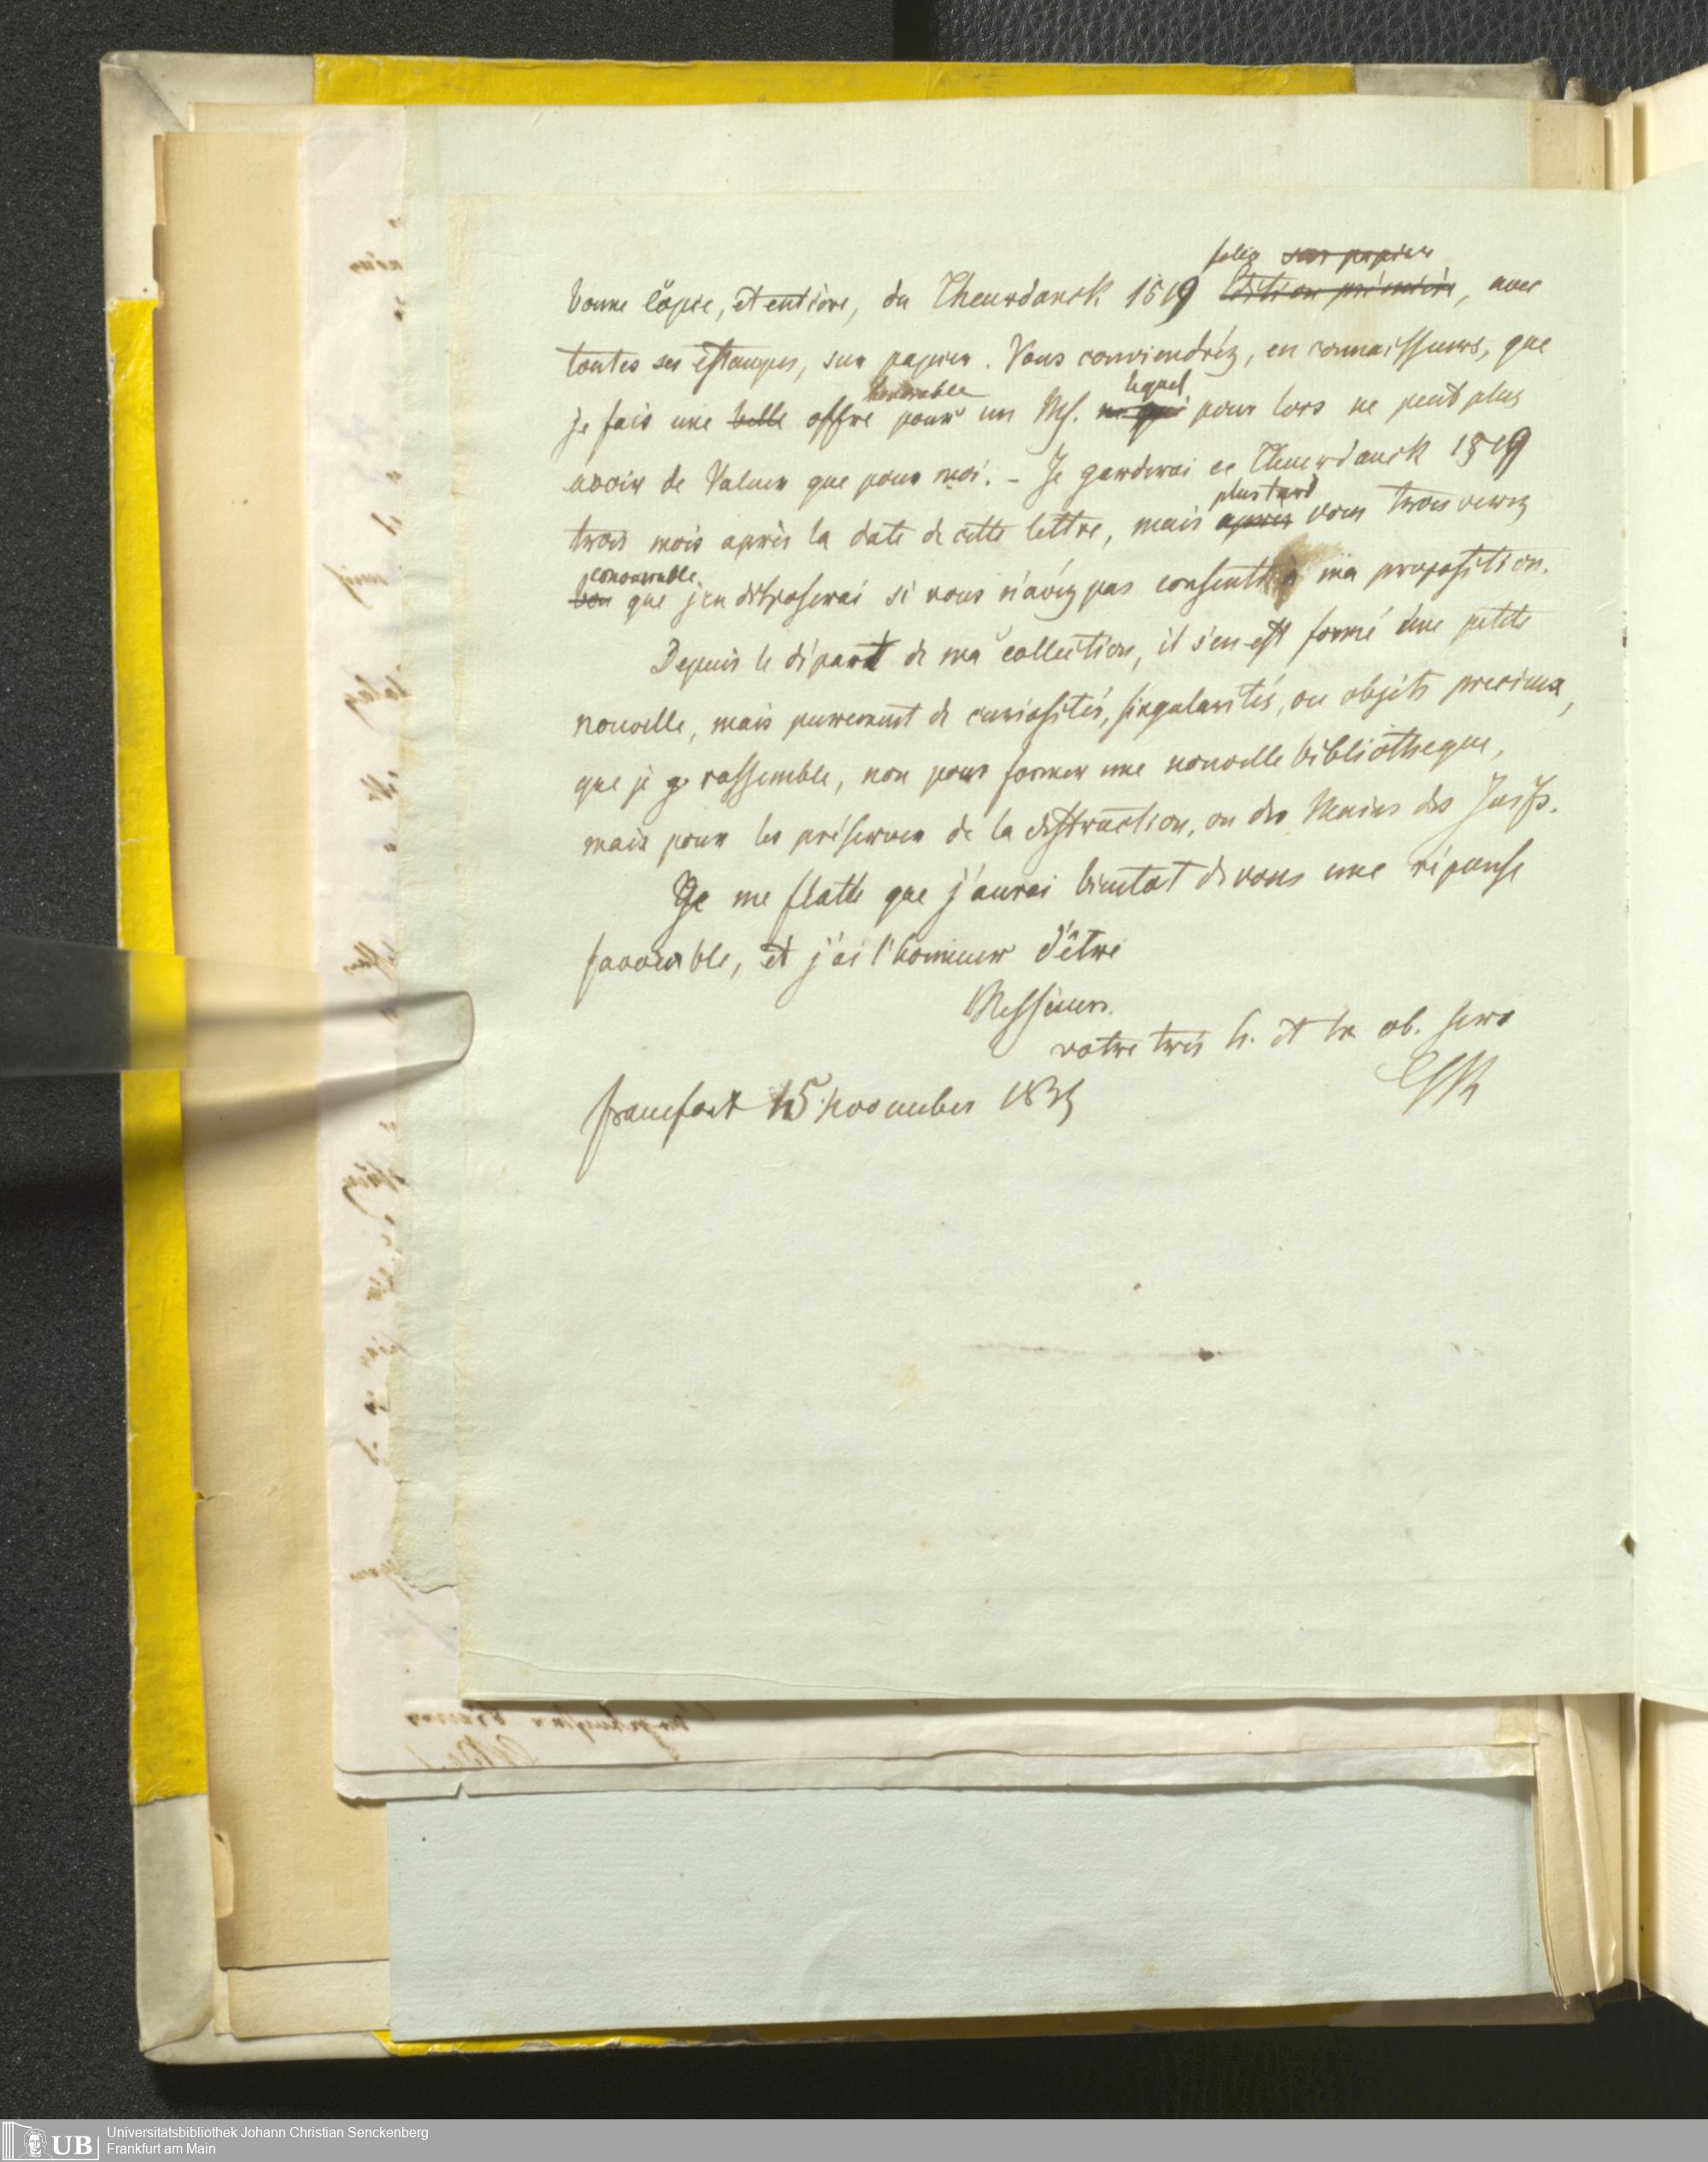 folio sur papier
bonne cöpie, et entière, du Theurdanck 1519 édition première, avec
toutes ses estampes, sur papier. Vous conviendréz, en connaisseurs, que
honorable lequel
je fais une belle offre pour un Ms. pour lors ne peut plus
avoir de Valeur que pour moi. - Je garderai ce Theuerdanck 1519
plus tard
trois mois après la date de cette lettre, mais après vous trouverez
convenable
bon que j'en disposerai si vous n'avéz pas consenti à ma proposition.
Depuis le départ de ma collection, il s'en est formé une petite
nouvelle, mais purement de curiosités, singularités, ou objets precieux,
que je rassemble, non pour former une nouvelle bibliotheque,
mais pour les préserver de la destruction, ou des Mains des Juifs.
Je me flatte que j'aurai bientot de vous une réponse
favorable, et j'ai l'honneur d'être
Messieurs.
votre très h. et tr ob. serv
francfort 15 november 1835
Universitätsbibliothek Johann Christian Senckenberg
UB
Frankfurt am Main